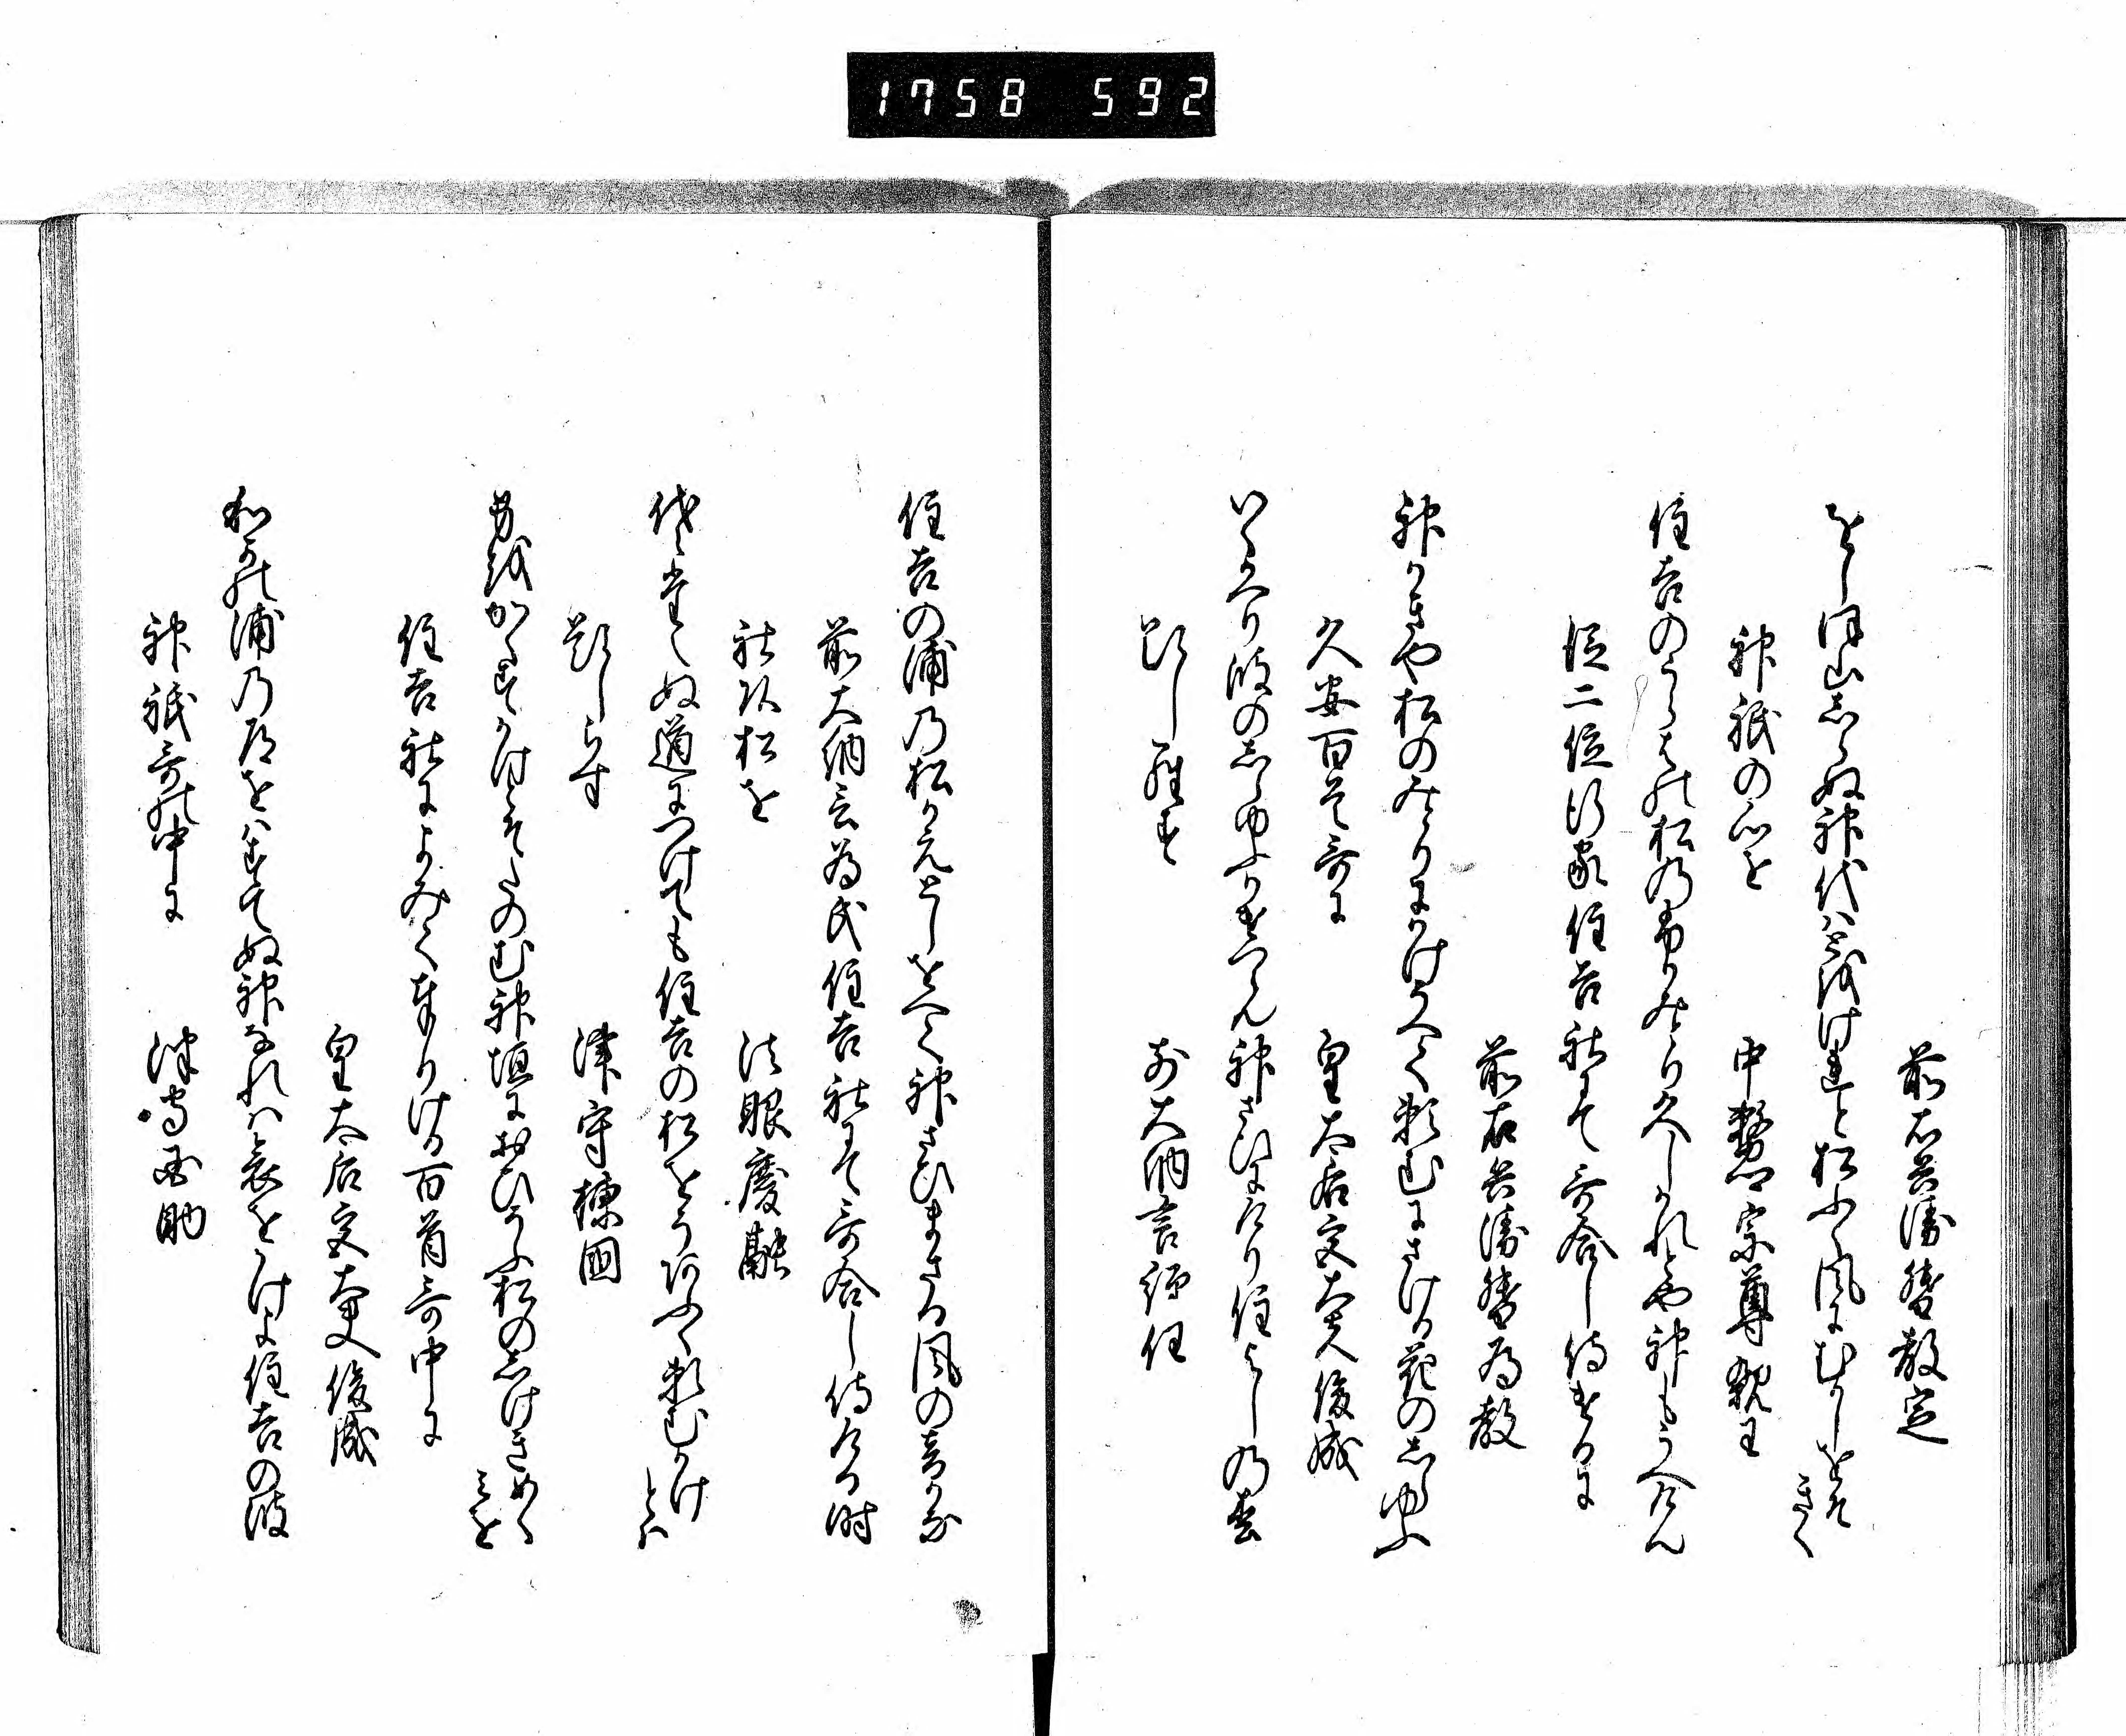 1758 592
前右兵衛督教定
をしほ山しらぬ神代はとをけれと松ふく風にむかしをそきく
神祇の心を
中務卿宗尊親王
住吉のうらはの松の
従二位行家住吉社にて哥合し侍ける に
前右兵衛督為教
神かきや松のみとりにかけそへて頼むにさける花のしらゆふ
久安百首哥に
皇太后宮大夫俊成
いくかへり波のしらゆふかけつらん神さひにけり住よしの松
題しらす
前大納言経任
住吉の浦の松かえとしをへて神さひまさる風の音かな
前大納言為氏住吉社にて哥合し侍ける時
社頭松を
法眼慶融
代々たえぬ道につけても住吉の松をそあふく頼むかけとは
題しらす
津守棟国
身をかくす かけとそたのむ神垣におひそふ松のしけきめくみを
住吉社によみて奉りける百首哥中に
皇太后宮大夫俊成
和かの浦の道をはすてぬ神なれは哀をかけよ住吉の波
神祇哥の中に
津守国助